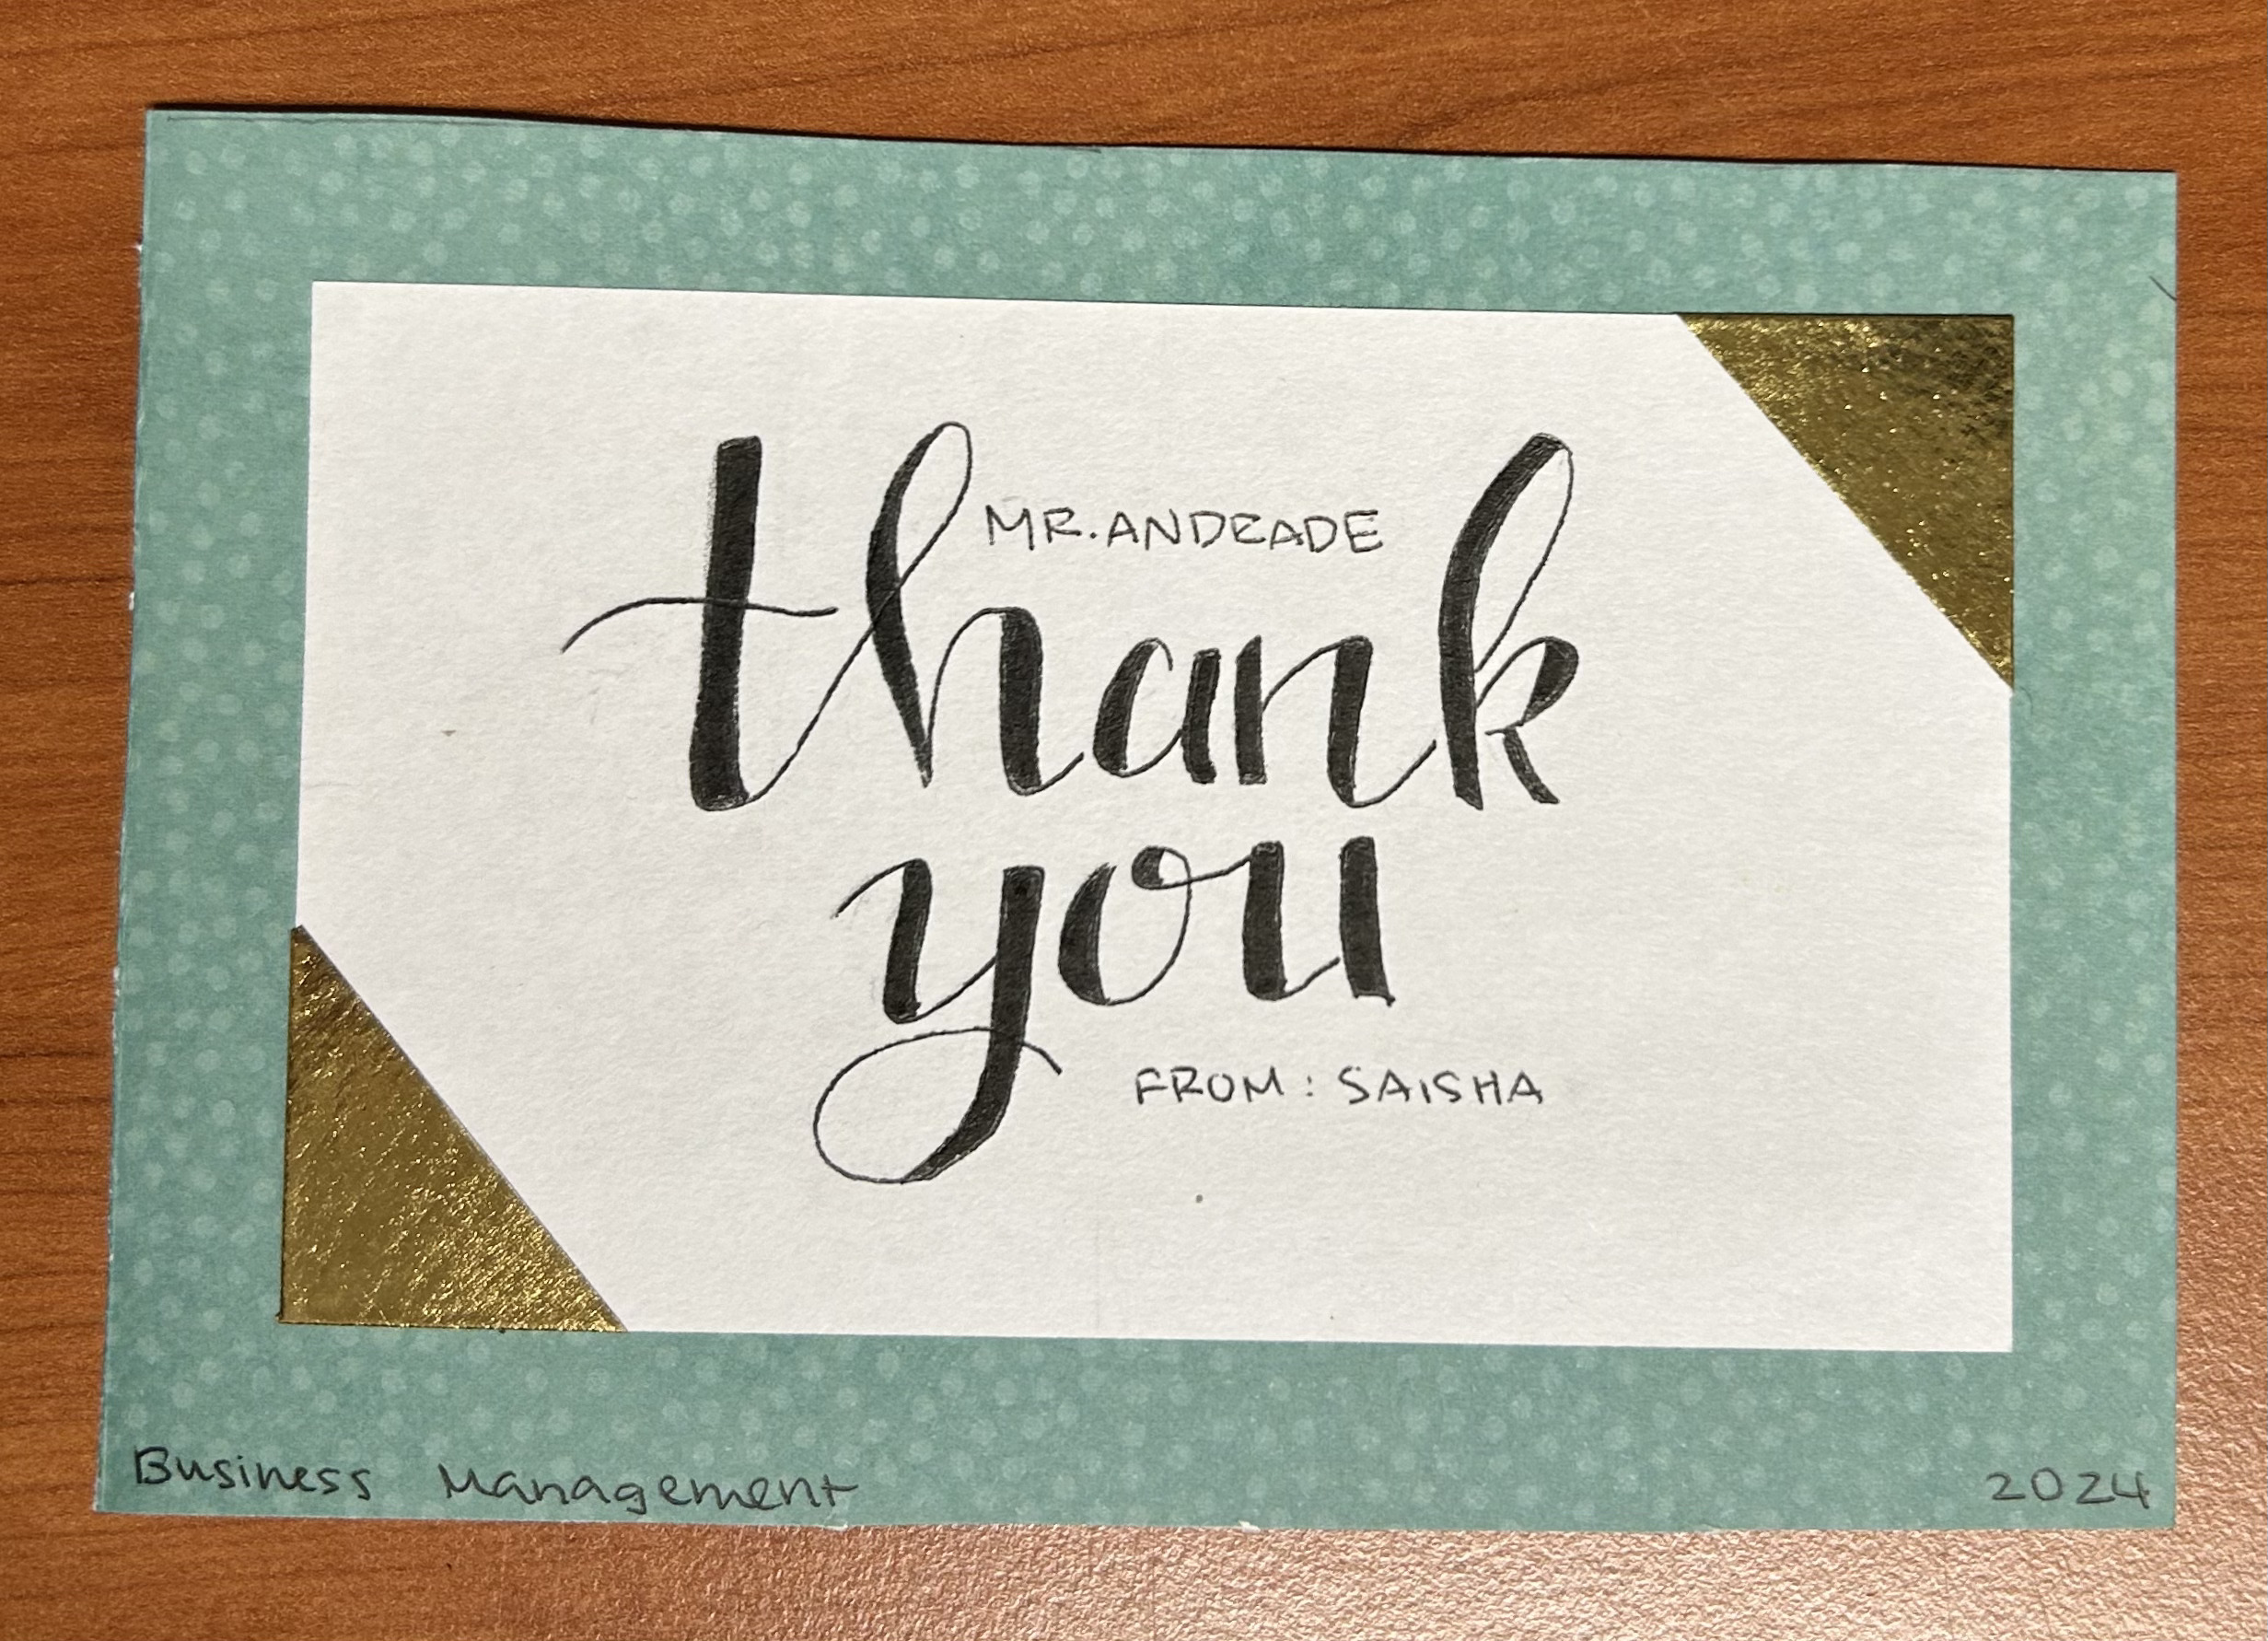 MR. ANDRADE
thank
you
FROM: SAISHA
Business Management 2024